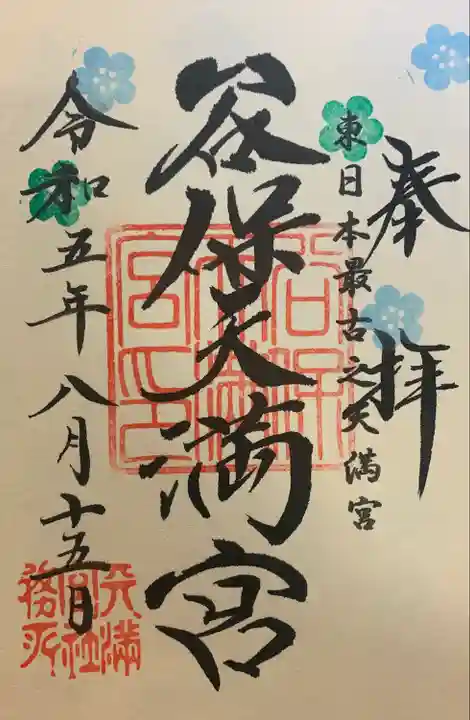 奉拝
東日本最古之天満宮
谷保天満宮
令和五年八月十五日
谷保天満宮之印
天満宮社務所